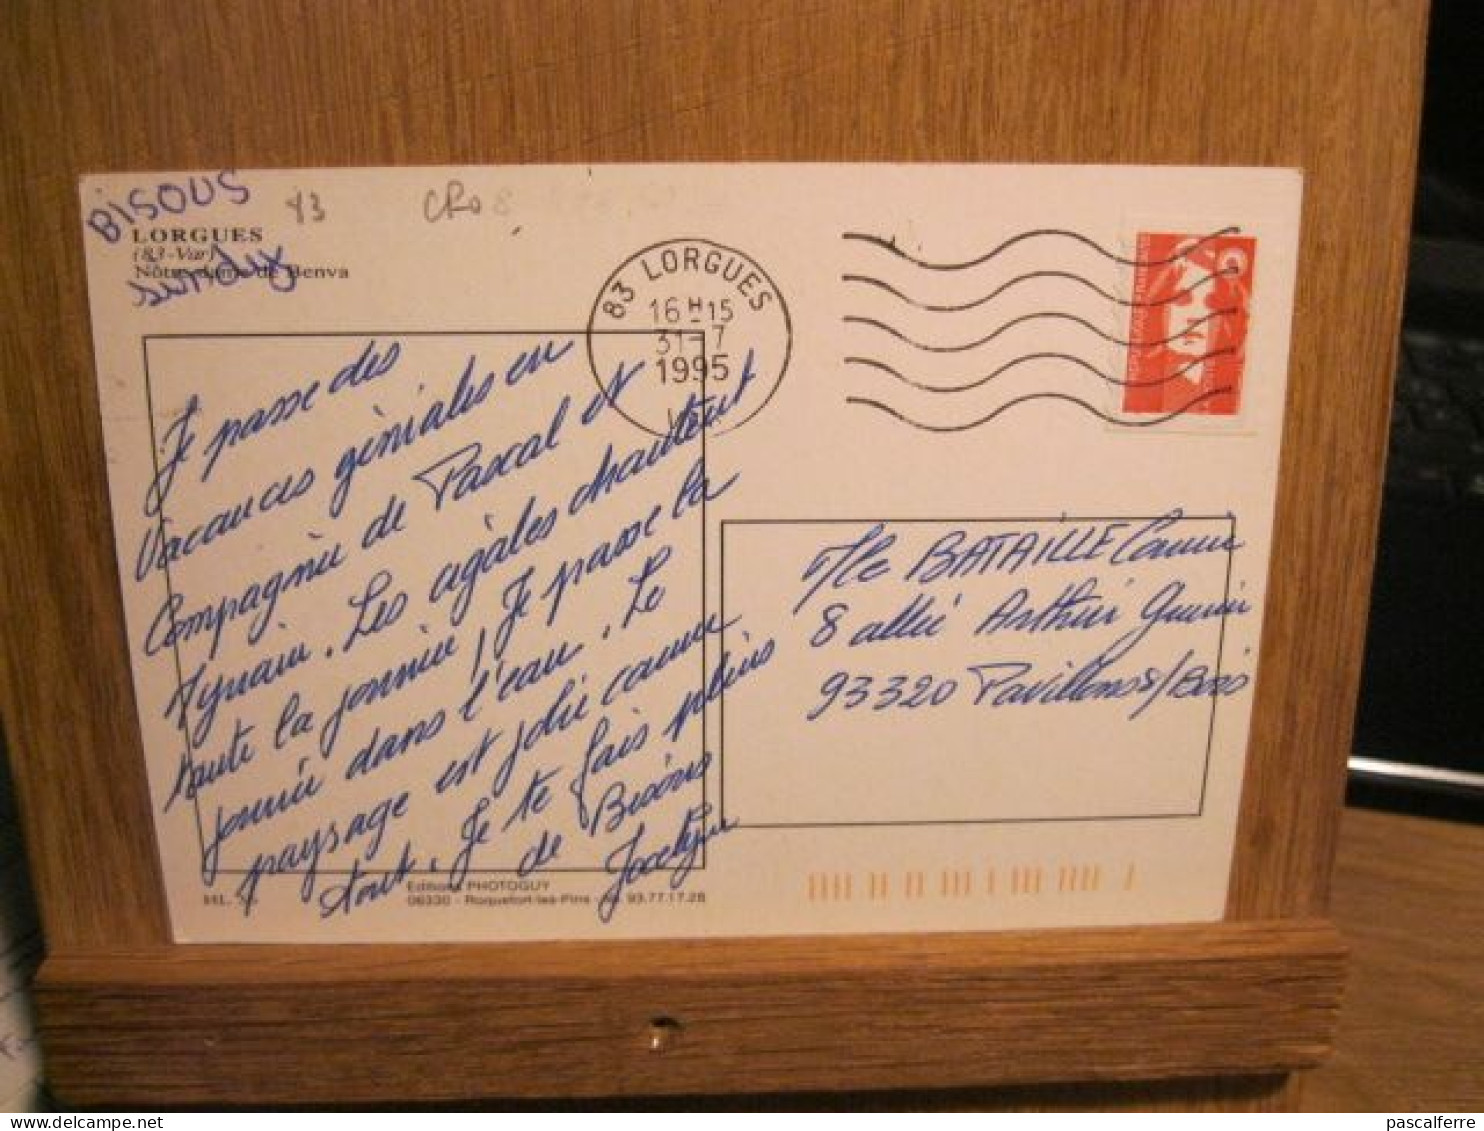 BISOUS
83
CRO8
LORGUES
(83-Var)
Nôtre dame de Benva
83 LORGUES
16 H 15
31-7
1995
Je passe des
vacances géniales en
compagnie de Pascal et
Les cigales chantent
toute la journée, Je passe la
journée dans l'eau. Le
paysage est joli comme
tout. Je te fais pleins
de Bisous
Jocelyne
Mlle BATAILLE Carine
8 allée Arthur
93320 Pavillons s/Bois
Editions PHOTOGUY
06330 - Roquefort-les-Pins - 93.77.17.28
HL.
pascalferre